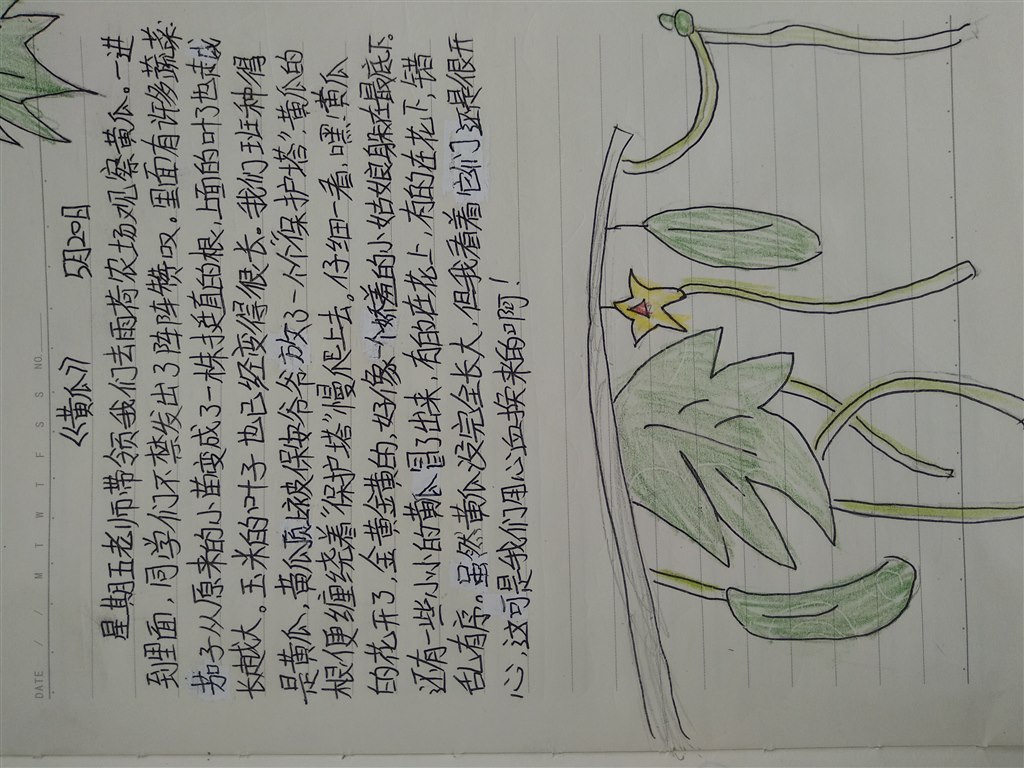 DATE / / M T W T F S S NO.
《黄瓜》 5月20日
星期五老师带领我们去雨荷农场观察黄瓜。一进
到里面，同学们不禁发出了阵阵赞叹。里面有许多蔬菜.
茄子从原来的小苗变成了一株挺直的根，上面的叶子也越
长越大。玉米的叶子也已经变得很长。我们班种得
是黄瓜，黄瓜顶被保安爷爷放了一个“保护塔”，黄瓜的
根便缠绕着“保护塔”慢爬上去。仔细一看，嘿，黄瓜
的花开了，金黄金黄的，好像一个娇羞的小姑娘躲在最底下。
还有一些小小的黄瓜冒了出来，有的在花上，有的在花下，错
乱有序。虽然黄瓜没完全长大，但我看着它们还是很开
心，这可是我们用心血换来的啊！